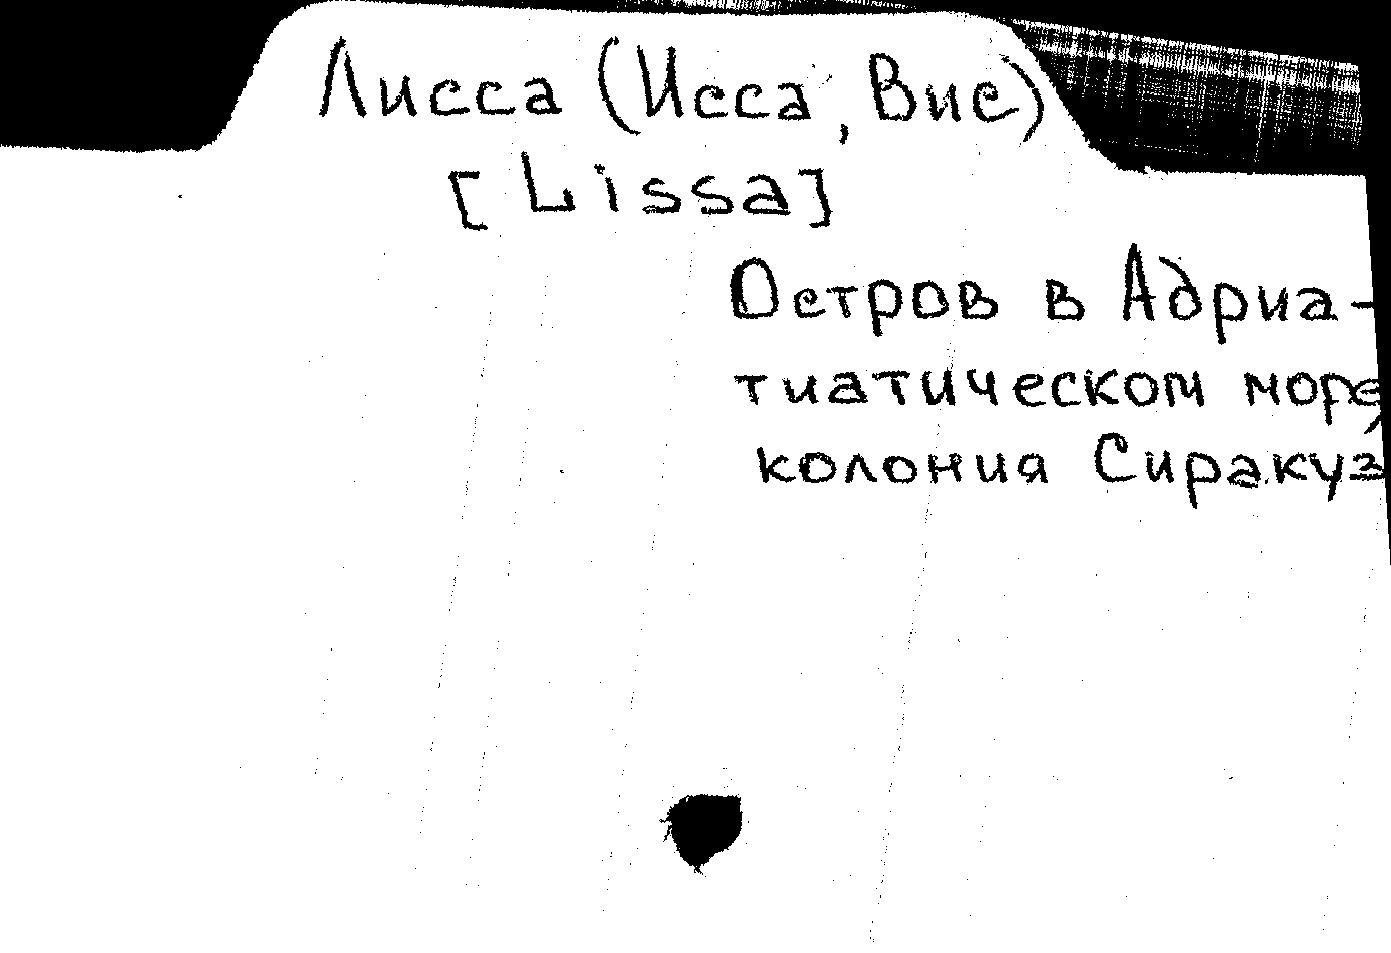 Лисса (Исса, Вис)
[Lissa]
Остров в Адриа-
тиатическом море,
колония Сиракуз